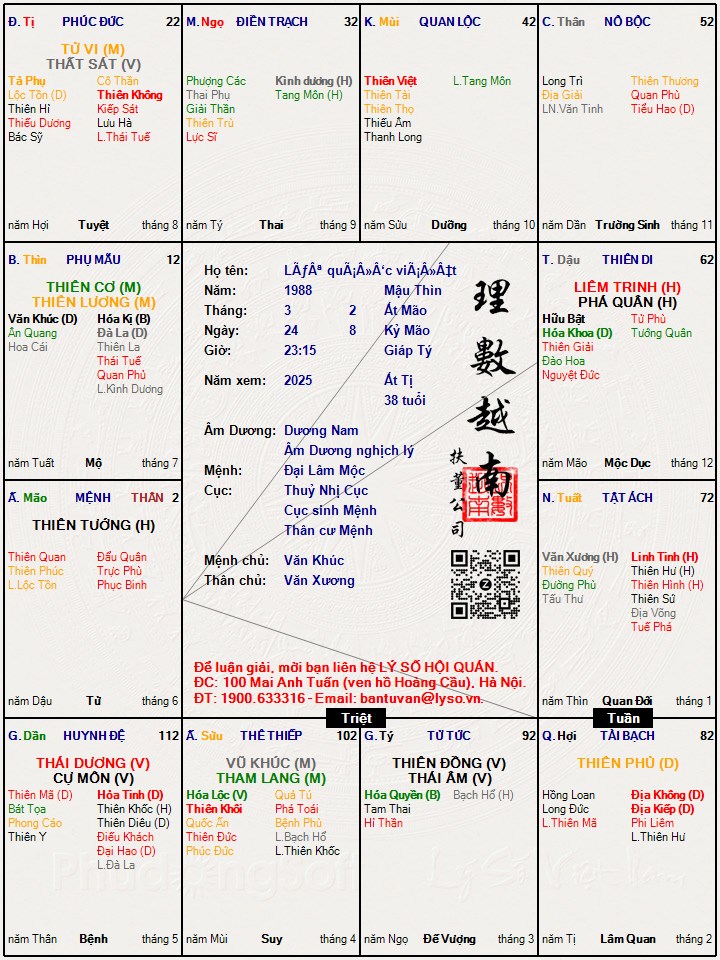 Đ. Tị PHÚC ĐỨC 22
TỬ VI (M)
THẤT SÁT (V)
Tả Phụ Cô Thần
Lộc Tồn (D) Thiên Không
Thiên Hỉ Kiếp Sát
Thiếu Dương Lưu Hà
Bác Sỹ L.Thái Tuế
năm Hợi Tuyệt tháng 8
M. Ngọ ĐIỀN TRẠCH 32
Phượng Các Kình dương (H)
Thai Phụ Tang Môn (H)
Giải Thần
Thiên Trù
Lực Sĩ
năm Tý Thai tháng 9
K. Mùi QUAN LỘC 42
Thiên Việt L.Tang Môn
Thiên Tài
Thiên Thọ
Thiếu Âm
Thanh Long
năm Sửu Dưỡng tháng 10
C. Thân NÔ BỘC 52
Long Trì Thiên Thương
Địa Giải Quan Phù
LN.Văn Tinh Tiểu Hao (D)
năm Dần Trường Sinh tháng 11
B. Thìn PHỤ MẪU 12
THIÊN CƠ (M)
THIÊN LƯƠNG (M)
Văn Khúc (D) Hóa Kị (B)
Ân Quang Đà La (D)
Hoa Cái Thiên La
Thái Tuế
Quan Phủ
L.Kình Dương
năm Tuất Mộ tháng 7
Họ tên: LÃƒÂª quÃ¡Â»Â‘c viÃ¡Â»Â‡t
Năm: 1988 Mậu Thìn
Tháng: 3 2 Ất Mão
Ngày: 24 8 Kỷ Mão
Giờ: 23:15 Giáp Tý
Năm xem: 2025 Ất Tị
38 tuổi
Âm Dương: Dương Nam
Âm Dương nghịch lý
Mệnh: Đại Lâm Mộc
Cục: Thuỷ Nhị Cục
Cục sinh Mệnh
Thân cư Mệnh
Mệnh chủ: Văn Khúc
Thân chủ: Văn Xương
理數越南
扶董公司
Để luận giải, mời bạn liên hệ LÝ SỐ HỘI QUÁN.
ĐC: 100 Mai Anh Tuấn (ven hồ Hoàng Cầu), Hà Nội.
ĐT: 1900.633316 - Email: bantuvan@lyso.vn.
T. Dậu THIÊN DI 62
LIÊM TRINH (H)
PHÁ QUÂN (H)
Hữu Bật Tử Phù
Hóa Khoa (D) Tướng Quân
Thiên Giải
Đào Hoa
Nguyệt Đức
năm Mão Mộc Dục tháng 12
Ấ. Mão MỆNH THÂN 2
THIÊN TƯỚNG (H)
Thiên Quan Đẩu Quân
Thiên Phúc Trực Phù
L.Lộc Tồn Phục Binh
năm Dậu Tử tháng 6
N. Tuất TẬT ÁCH 72
Văn Xương (H) Linh Tinh (H)
Thiên Quý Thiên Hư (H)
Đường Phù Thiên Hình (H)
Tấu Thư Thiên Sứ
Địa Võng
Tuế Phá
năm Thìn Quan Đới tháng 1
Triệt
Tuần
G. Dần HUYNH ĐỆ 112
THÁI DƯƠNG (V)
CỰ MÔN (V)
Thiên Mã (D) Hỏa Tinh (D)
Bát Tọa Thiên Khốc (H)
Phong Cáo Thiên Diêu (D)
Thiên Y Điếu Khách
Đại Hao (D)
L.Đà La
năm Thân Bệnh tháng 5
Ấ. Sửu THÊ THIẾP 102
VŨ KHÚC (M)
THAM LANG (M)
Hóa Lộc (V) Quả Tú
Thiên Khôi Phá Toái
Quốc Ấn Bệnh Phù
Thiên Đức L.Bạch Hổ
Phúc Đức L.Thiên Khốc
năm Mùi Suy tháng 4
G. Tý TỬ TỨC 92
THIÊN ĐỒNG (V)
THÁI ÂM (V)
Hóa Quyền (B) Bạch Hổ (H)
Tam Thai
Hỉ Thần
năm Ngọ Đế Vượng tháng 3
Q. Hợi TÀI BẠCH 82
THIÊN PHỦ (D)
Hồng Loan Địa Không (D)
Long Đức Địa Kiếp (D)
L.Thiên Mã Phi Liêm
L.Thiên Hư
năm Tị Lâm Quan tháng 2